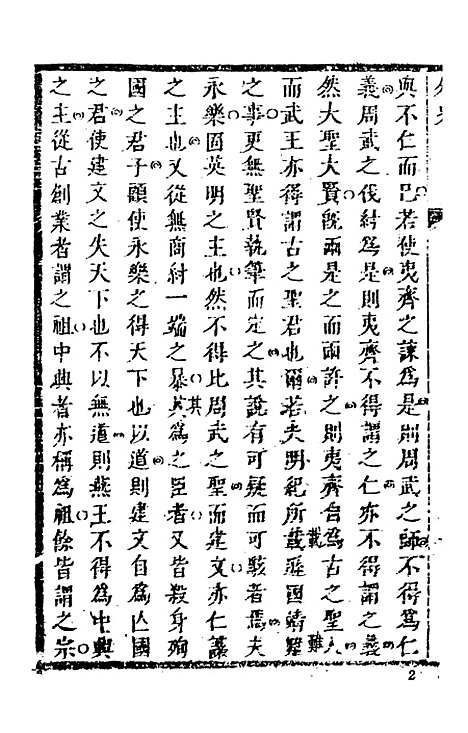 與不仁而已若使夷齊之諫為是則周武之師不得為仁
義周武之伐紂為是則夷齊不得謂之仁亦不得謂之義
然大聖大賢既兩是之而兩許之則夷齊自為古之聖人
而武王亦得謂古之聖君也爾若夫明紀所載遜國靖難
之事更無聖賢執筆而定之其說有可疑而可駭者焉夫
永樂固英明之主也然不得比周武之聖而建文亦仁讓
之主也又從無商紂一端之暴其為之臣者又皆殺身殉
國之君子顧使永樂之得天下也以道則建文自為亡國
之君使建文之失天下也不以無道則燕王不得為中興
之主從古創業者謂之祖中興者亦稱為祖餘皆謂之宗
2